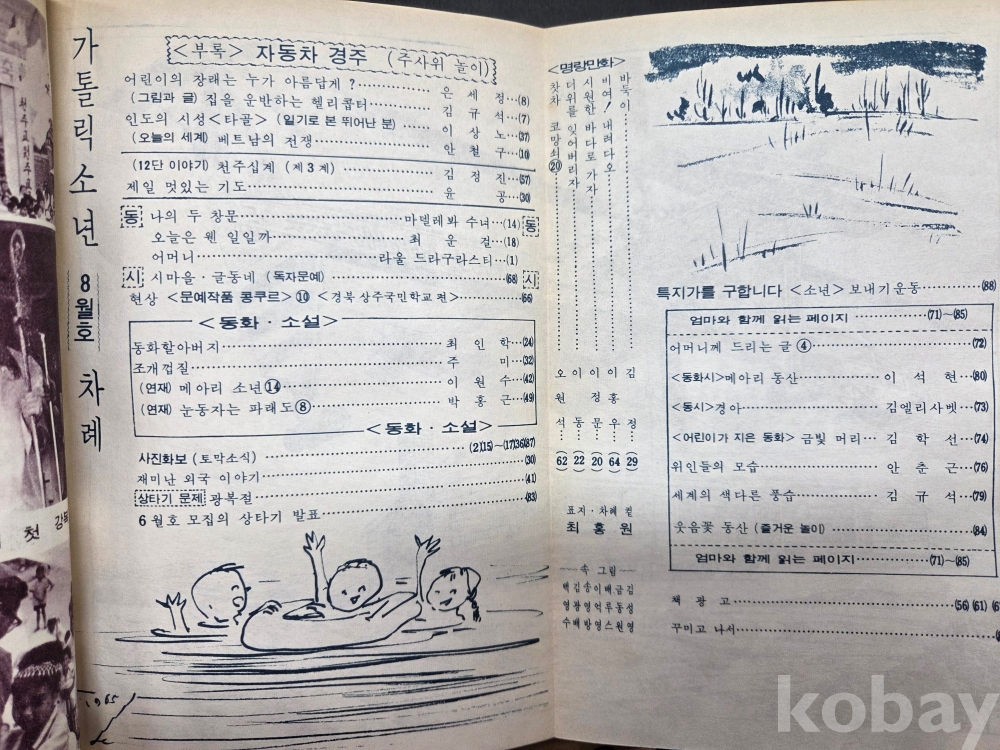 가톨릭소년 8월호 차례
<부록> 자동차 경주 (주사위 놀이)
어린이의 장래는 누가 아름답게?……은세정…(8)
(그림과 글) 집을 운반하는 헬리콥터……김규석…(7)
인도의 시성<타골> (일기로 본 뛰어난 분)……이상노…(37)
(오늘의 세계) 베트남의 전쟁……안철구…(10)
(12단 이야기) 천주십계 (제3계)……김정진…(57)
제일 멋있는 기도……윤공…(30)
동 나의 두 창문……마델레봐 수녀…(14) 동
오늘은 웬 일일까……최운걸…(18)
어머니……라울 드라구라스티…(1)
시 시마을·글동네 (독자문예)……(68) 시
현상 <문예작품 콩쿠르>⑩ <경북 상주국민학교 편>……(66)
<동화·소설>
동화할아버지……최인학…(24)
조개껍질……주미…(32)
(연재) 메아리 소년⑭……이원수…(42)
(연재) 눈동자는 파래도⑧……박홍근…(49)
<동화·소설>
사진화보 (토막소식)……(2)(15)~(17)(36)(87)
재미난 외국 이야기……(30)
상타기 문제 광복절……(41)
6월호 모집의 상타기 발표……(83)
1965
<명랑만화>
바둑이……김정…(29)
비여! 내려다오……이홍우…(64)
시원한 바다로 가자……이정문…(20)
더위를 잊어버리자……이동…(22)
찻차 코망쇠⑳……오원석…(62)
표지·차례 컽
최홍원
속 그림
백김송이배금김
영광영억루동성
수배방영스원영
특지가를 구합니다 <소년> 보내기운동……(88)
엄마와 함께 읽는 페이지……(71)~(85)
어머니께 드리는 글④……(72)
<동화시>메아리 동산……이석현…(80)
<동시>경아……김엘리사벳…(73)
<어린이가 지은 동화> 금빛 머리…김학선…(74)
위인들의 모습……안춘근…(76)
세계의 색다른 풍습……김규석…(79)
웃음꽃 동산 (즐거운 놀이)……(84)
엄마와 함께 읽는 페이지……(71)~(85)
책 광고……(56)(61)
꾸미고 나서……
천
kobay